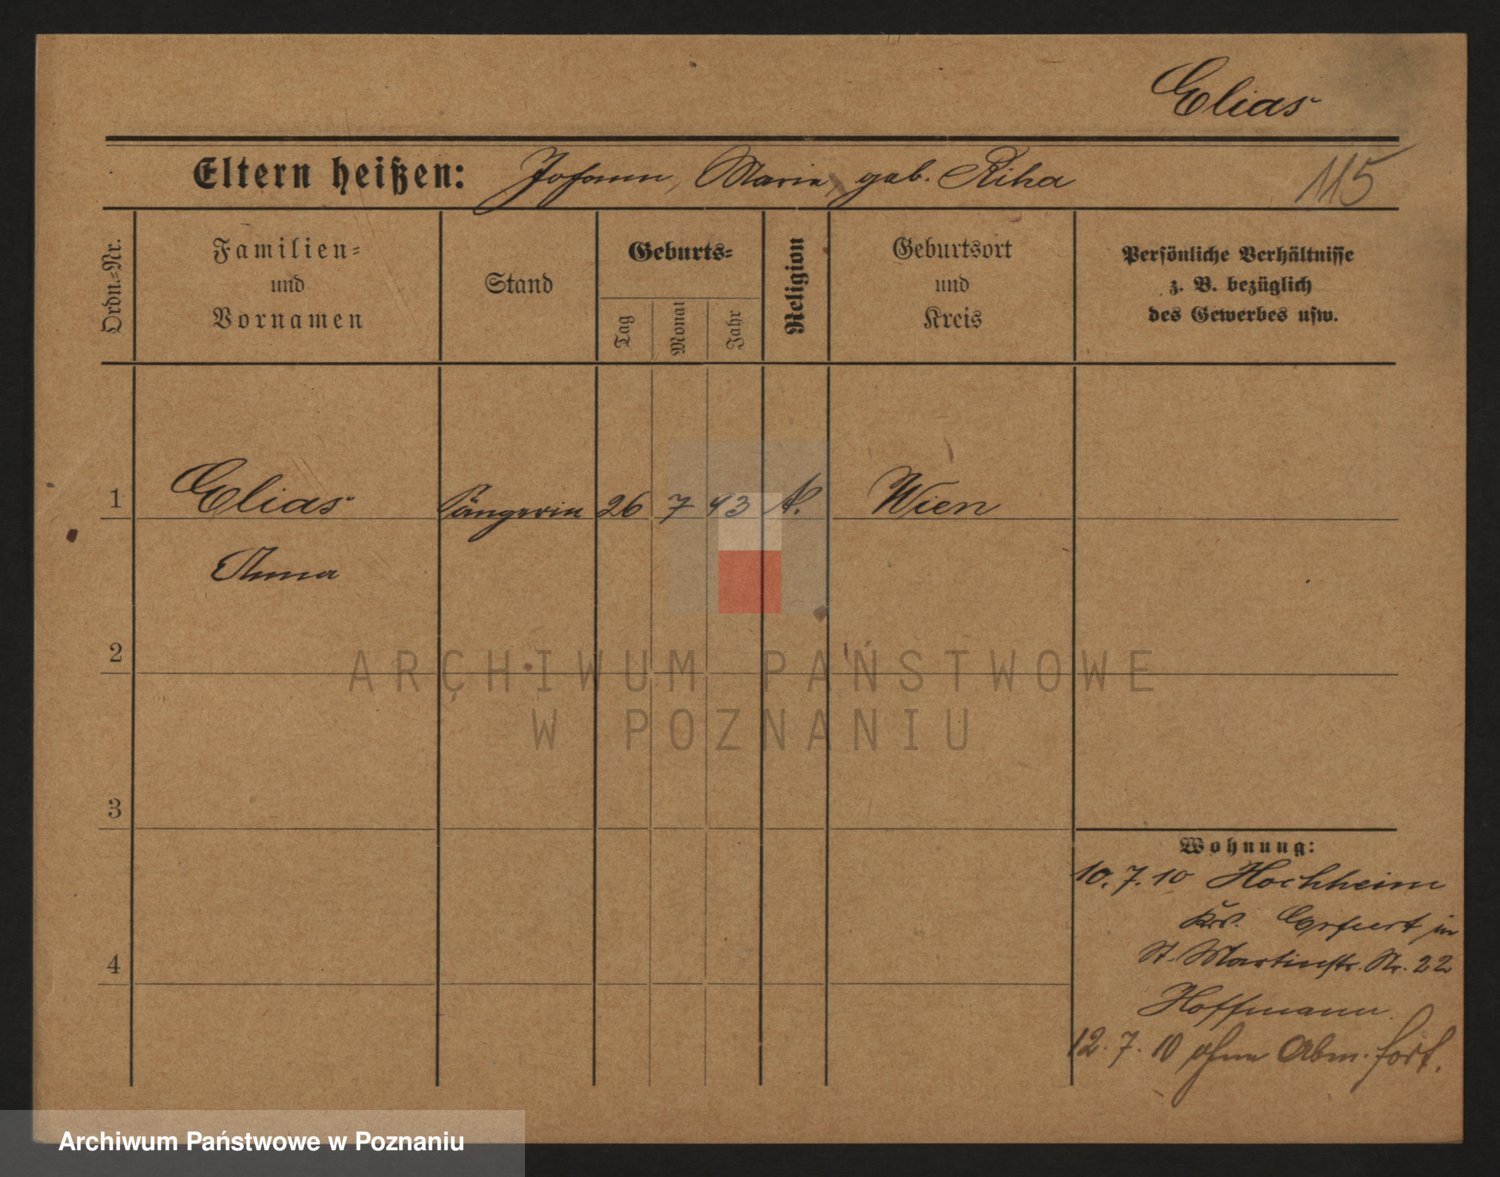 Elias
Eltern heißen: Johann, Marie geb. Riha
115
Ordn.-Nr.
Familien-
und
Vornamen
Stand
Geburts-
Tag
Monat
Jahr
Religion
Geburtsort
und
Kreis
Persönliche Verhältnisse
z. B. bezüglich
des Gewerbes usw.
1 Elias Sängerin 26 7 93 K. Wien
Anna
2
3
4
ARCHIWUM PAŃSTWOWE
W POZNANIU
Wohnung:
10.7.10 Hochheim
Krs. Erfurt in
St. Martinstr. Nr. 22
Hoffmann.
12.7.10 ohne Abm. fort.
Archiwum Państwowe w Poznaniu